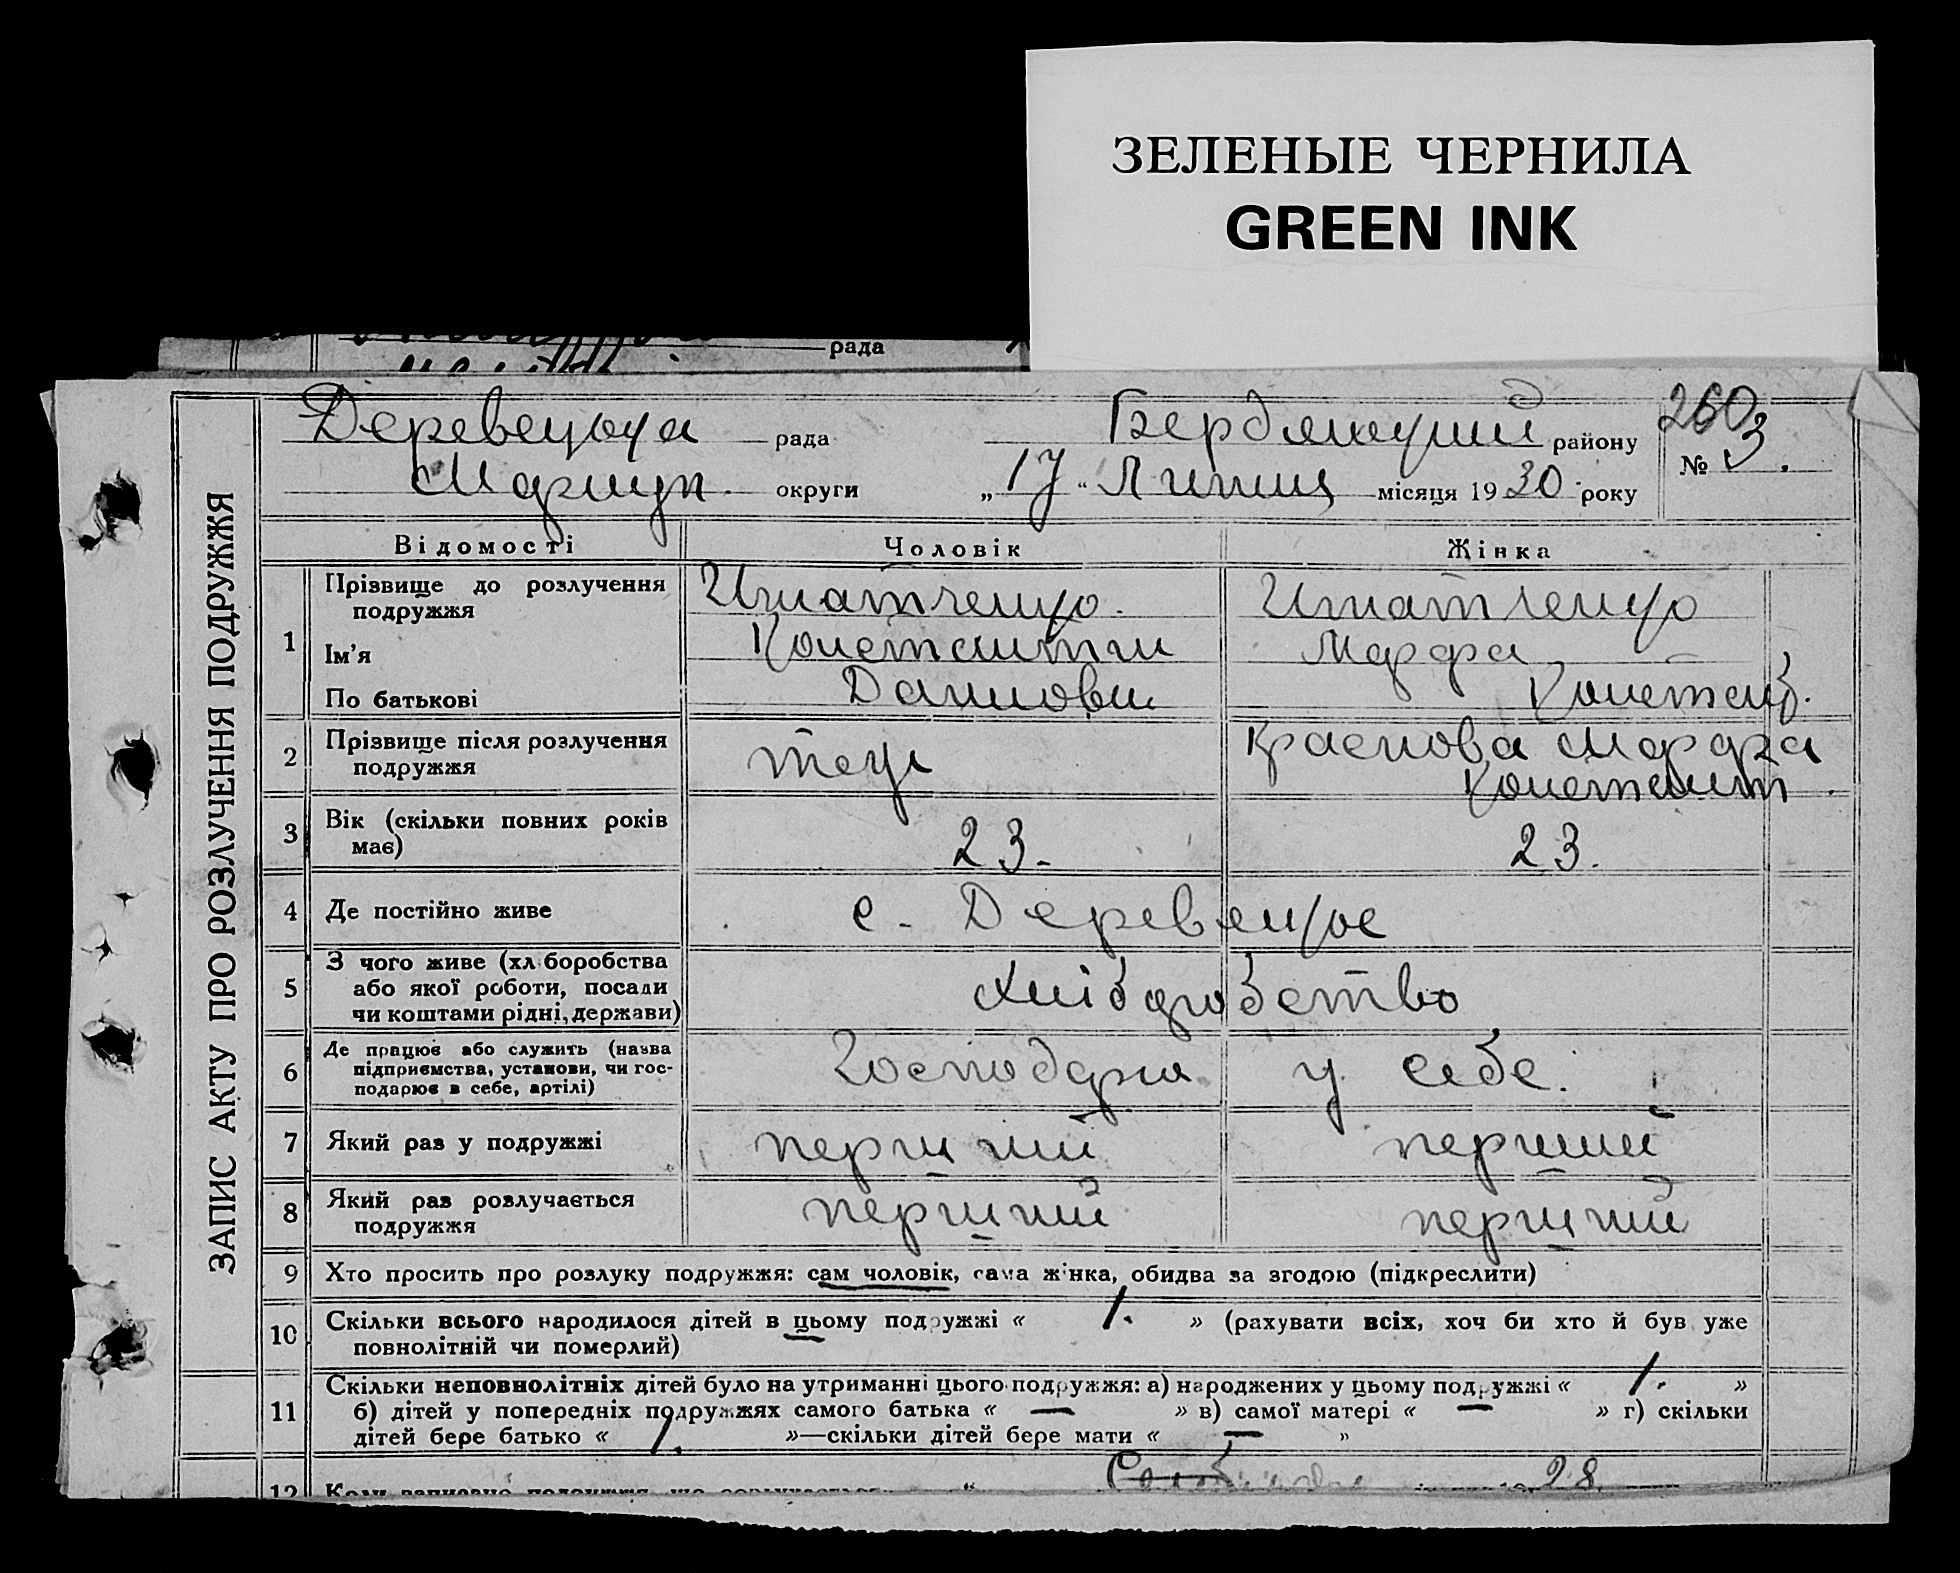 ЗЕЛЕНЫЕ ЧЕРНИЛА
GREEN INK
рада
рада
Бердянський району
260
№ 3.
Маріюп. округи
„17“ Липня місяця 1930 року
ЗАПИС АКТУ ПРО РОЗЛУЧЕННЯ ПОДРУЖЖЯ
Відомості Чоловік Жінка
1 Прізвище до розлучення подружжя Игнатченко. Игнатченко
Ім'я Константин Марфа
По батькові Данилович Констант.
2 Прізвище після розлучення подружжя теж Краснова Марфа Констант.
3 Вік (скільки повних років має) 23. 23.
4 Де постійно живе с.
5 З чого живе (хліборобства або якої роботи, посади чи коштами рідні, держави) Хліборобство
6 Де працює або служить (назва підприємства, установи, чи господарює в себе, артілі) у себе.
7 Який раз у подружжі перший перший
8 Який раз розлучається подружжя перший перший
9 Хто просить про розлуку подружжя: сам чоловік, сама жінка, обидва за згодою (підкреслити)
10 Скільки всього народилося дітей в цьому подружжі « 1. » (рахувати всіх, хоч би хто й був уже
повнолітній чи померлий)
11 Скільки неповнолітніх дітей було на утриманні цього подружжя: а) народжених у цьому подружжі « 1. »
б) дітей у попередніх подружжях самого батька « — » в) самої матері « — » г) скільки
дітей бере батько « 1. »—скільки дітей бере мати « — »
12 28